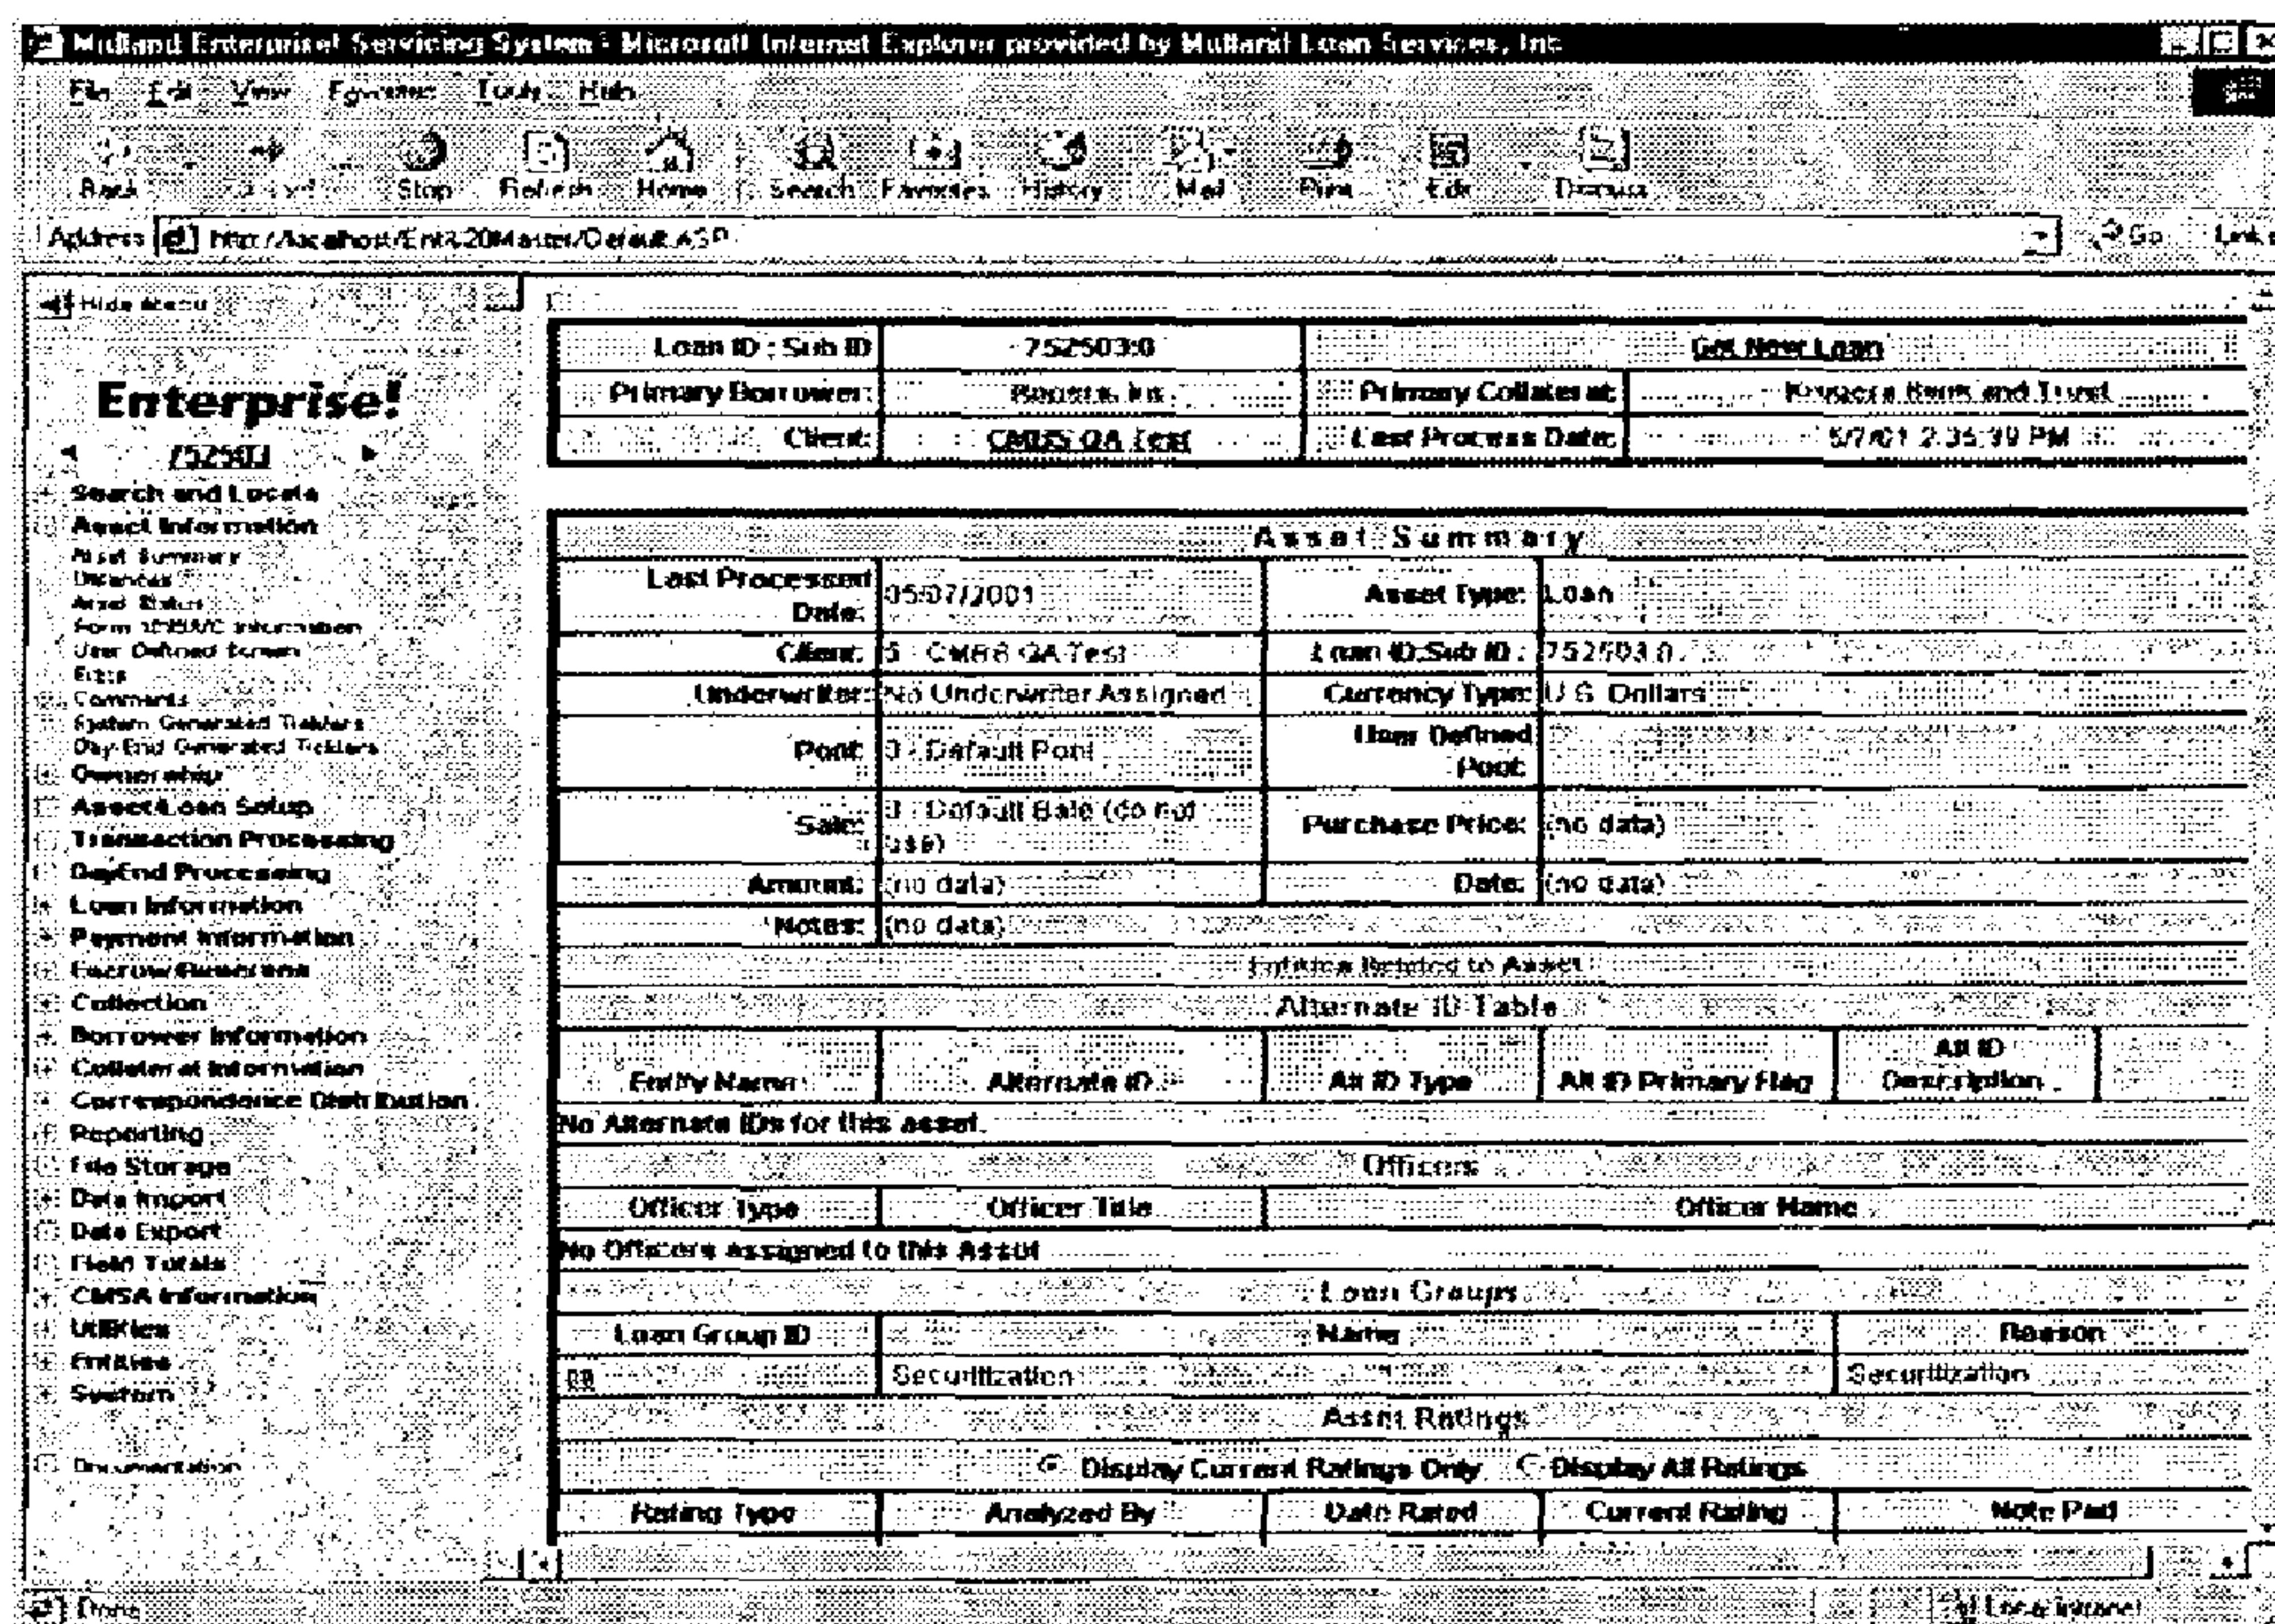 Enterprise! Servicing System - Microsoft Internet Explorer provided by Loan Services, Inc
File Edit View Favorites Tools Help
Back Stop Refresh Home Search Favorites History Mail Print Edit Discuss
Address http://localhost/Ent%20Master/Default.ASP Go Links
Hide Menu
Enterprise!
752503
Search and Locate
Asset Information
Asset Summary
Balances
Asset Status
Form Information
User Defined Screen
Extra
Comments
System Generated Ticklers
Day-End Generated Ticklers
Ownership
Asset/Loan Setup
Transaction Processing
DayEnd Processing
Loan Information
Payment Information
Escrow/Reserves
Collection
Borrower Information
Collateral Information
Correspondence Distribution
Reporting
File Storage
Data Import
Data Export
Field Totals
CMSA Information
Utilities
Entities
System
Documentation
Loan ID : Sub ID 752503:0 Get New Loan
Primary Borrower: Primary Collateral: Bank and Trust
Client: CMBS QA Test Last Process Date: 5/7/01 2:35:39 PM
Asset Summary
Last Processed Date: 05/07/2001 Asset Type: Loan
Client: 5 - CMBS QA Test Loan ID:Sub ID : 752503:0
Underwriter: No Underwriter Assigned Currency Type: U.S. Dollars
Pool: 0 - Default Pool User Defined Pool:
Sale: 0 - Default Sale (do not use) Purchase Price: (no data)
Amount: (no data) Date: (no data)
Notes: (no data)
Entities Related to Asset
Alternate ID Table
Entity Name Alternate ID Alt ID Type Alt ID Primary Flag Alt ID Description
No Alternate IDs for this asset.
Officers
Officer Type Officer Title Officer Name
No Officers assigned to this Asset
Loan Groups
Loan Group ID Name Reason
Securitization Securitization
Asset Ratings
Display Current Ratings Only Display All Ratings
Rating Type Analyzed By Date Rated Current Rating Note Pad
Done Local intranet